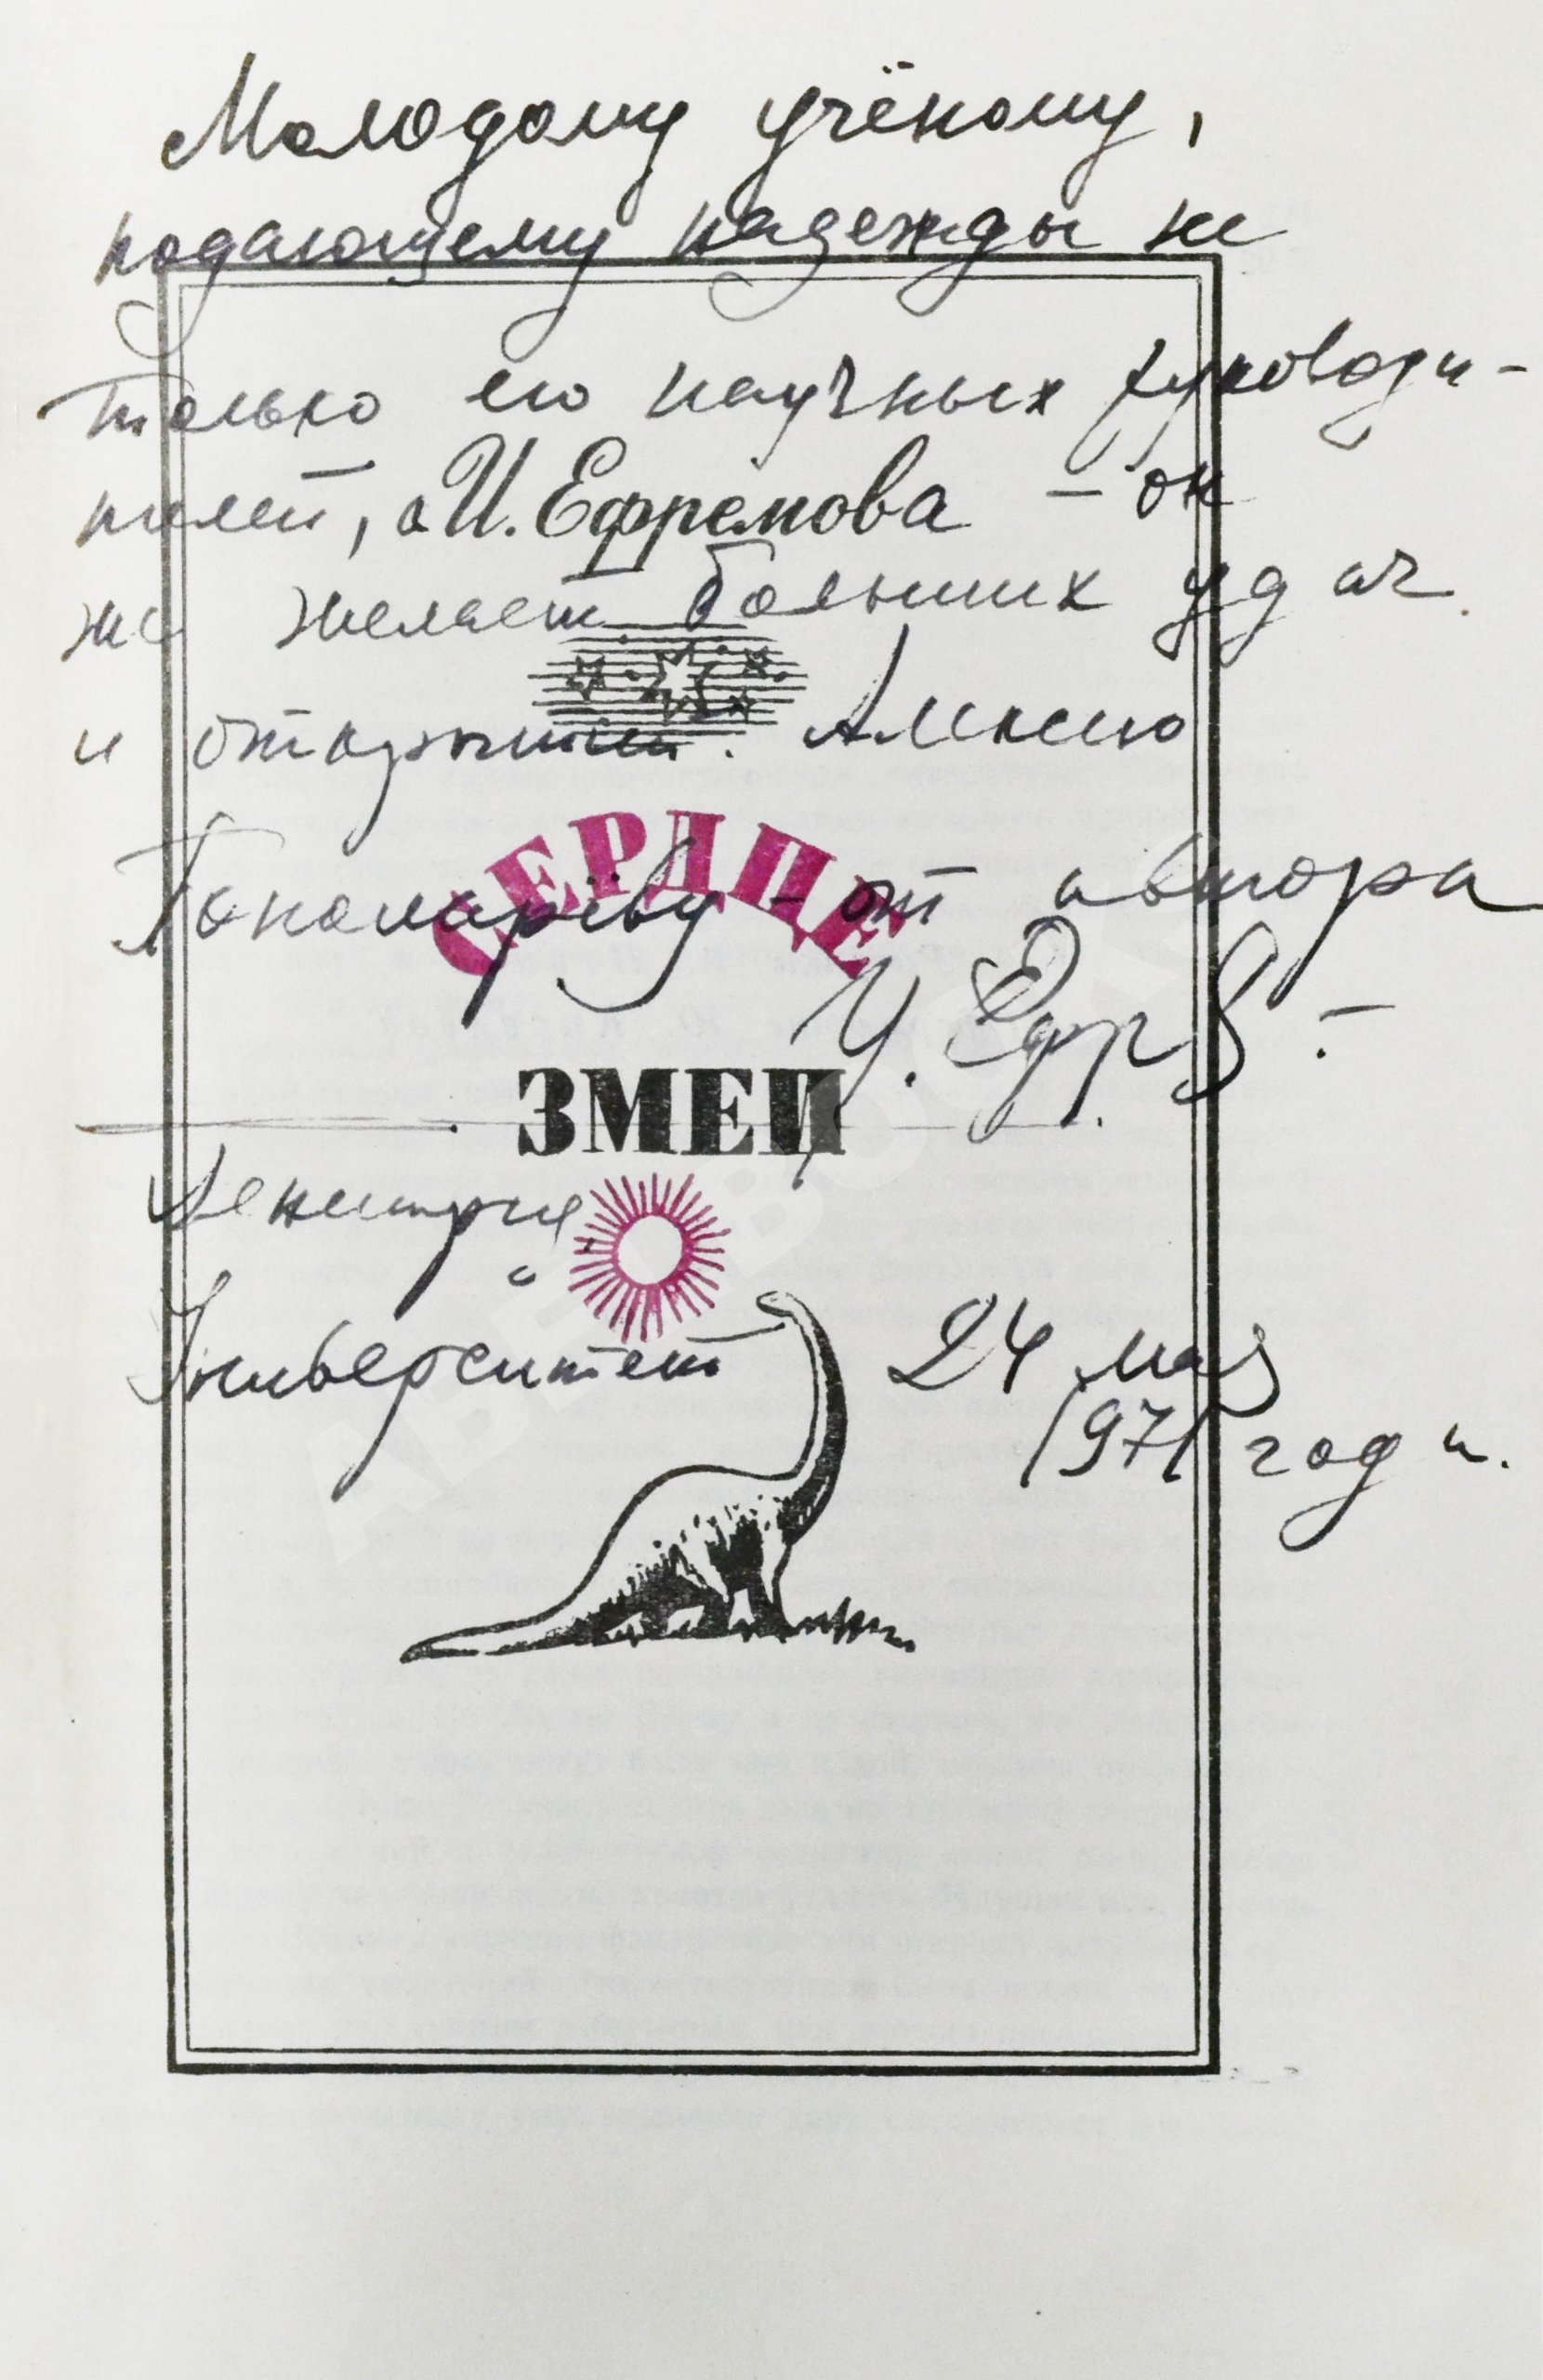 Молодому учёному,
подающему надежды не
только его научных руководи-
телей, а И. Ефремова – он
же желает больших удач
и открытий. Алексею
Пономарёву – от автора
СЕРДЦЕ
И. Ефр
ЗМЕИ
Университет 24 мая
1971 года.